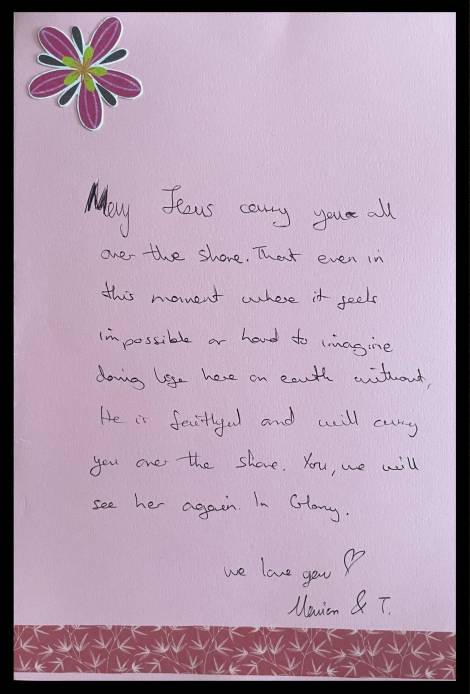 May Jesus carry you all
over the shore. That even in
this moment where it feels
impossible or hard to imagine
doing life here on earth without,
He is faithful and will carry
you over the shore. You, we will
see her again. In Glory.
we love you ♡
Marion & T.